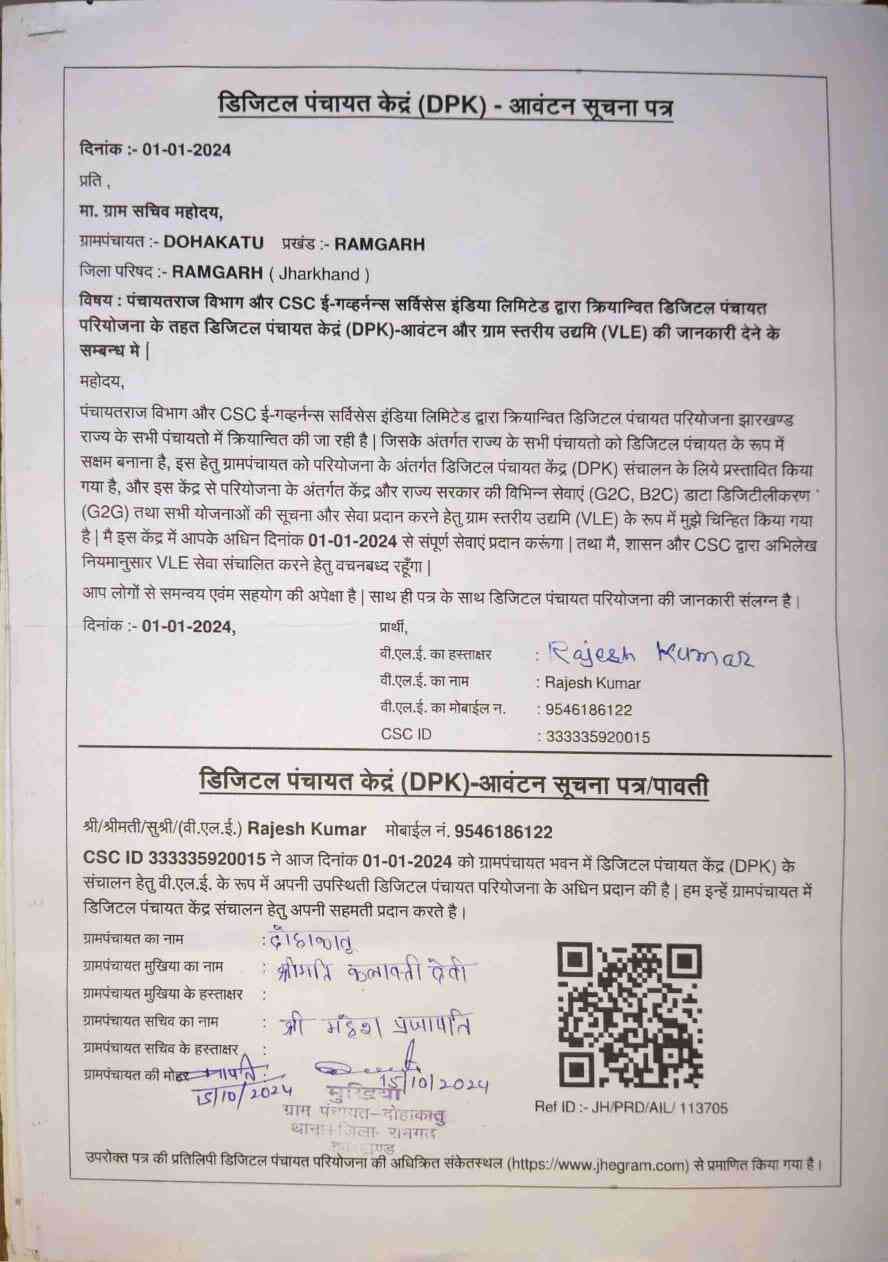 डिजिटल पंचायत केद्रं (DPK) - आवंटन सूचना पत्र
दिनांक :- 01-01-2024
प्रति ,
मा. ग्राम सचिव महोदय,
ग्रामपंचायत :- DOHAKATU प्रखंड :- RAMGARH
जिला परिषद :- RAMGARH ( Jharkhand )
विषय : पंचायतराज विभाग और CSC ई-गव्हर्नन्स सर्विसेस इंडिया लिमिटेड द्वारा क्रियान्वित डिजिटल पंचायत
परियोजना के तहत डिजिटल पंचायत केद्रं (DPK)-आवंटन और ग्राम स्तरीय उद्यमि (VLE) की जानकारी देने के
सम्बन्ध मे |
महोदय,
पंचायतराज विभाग और CSC ई-गव्हर्नन्स सर्विसेस इंडिया लिमिटेड द्वारा क्रियान्वित डिजिटल पंचायत परियोजना झारखण्ड
राज्य के सभी पंचायतो में क्रियान्वित की जा रही है | जिसके अंतर्गत राज्य के सभी पंचायतो को डिजिटल पंचायत के रूप में
सक्षम बनाना है, इस हेतु ग्रामपंचायत को परियोजना के अंतर्गत डिजिटल पंचायत केंद्र (DPK) संचालन के लिये प्रस्तावित किया
गया है, और इस केंद्र से परियोजना के अंतर्गत केंद्र और राज्य सरकार की विभिन्न सेवाएं (G2C, B2C) डाटा डिजिटीलीकरण
(G2G) तथा सभी योजनाओं की सूचना और सेवा प्रदान करने हेतु ग्राम स्तरीय उद्यमि (VLE) के रूप में मुझे चिन्हित किया गया
है | मै इस केंद्र में आपके अधिन दिनांक 01-01-2024 से संपूर्ण सेवाएं प्रदान करूंगा | तथा मै, शासन और CSC द्वारा अभिलेख
नियमानुसार VLE सेवा संचालित करने हेतु वचनबध्द रहूँगा |
आप लोगों से समन्वय एवंम सहयोग की अपेक्षा है | साथ ही पत्र के साथ डिजिटल पंचायत परियोजना की जानकारी संलग्न है |
दिनांक :- 01-01-2024, प्रार्थी,
वी.एल.ई. का हस्ताक्षर : Rajesh Kumar
वी.एल.ई. का नाम : Rajesh Kumar
वी.एल.ई. का मोबाईल न. : 9546186122
CSC ID : 333335920015
डिजिटल पंचायत केद्रं (DPK)-आवंटन सूचना पत्र/पावती
श्री/श्रीमती/सुश्री/(वी.एल.ई.) Rajesh Kumar मोबाईल नं. 9546186122
CSC ID 333335920015 ने आज दिनांक 01-01-2024 को ग्रामपंचायत भवन में डिजिटल पंचायत केंद्र (DPK) के
संचालन हेतु वी.एल.ई. के रूप में अपनी उपस्थिती डिजिटल पंचायत परियोजना के अधिन प्रदान की है | हम इन्हें ग्रामपंचायत में
डिजिटल पंचायत केंद्र संचालन हेतु अपनी सहमती प्रदान करते है |
ग्रामपंचायत का नाम : दोहाकातू
ग्रामपंचायत मुखिया का नाम : श्रीमति कलावती देवी
ग्रामपंचायत मुखिया के हस्ताक्षर :
ग्रामपंचायत सचिव का नाम : श्री महेश प्रजापति
ग्रामपंचायत सचिव के हस्ताक्षर :
ग्रामपंचायत की मोहर :
15/10/2024 15/10/2024
मुखिया
ग्राम पंचायत-दोहाकातु
थाना+जिला- रामगढ़
झारखण्ड
Ref ID :- JH/PRD/AIL/ 113705
उपरोक्त पत्र की प्रतिलिपी डिजिटल पंचायत परियोजना की अधिक्रित संकेतस्थल (https://www.jhegram.com) से प्रमाणित किया गया है |